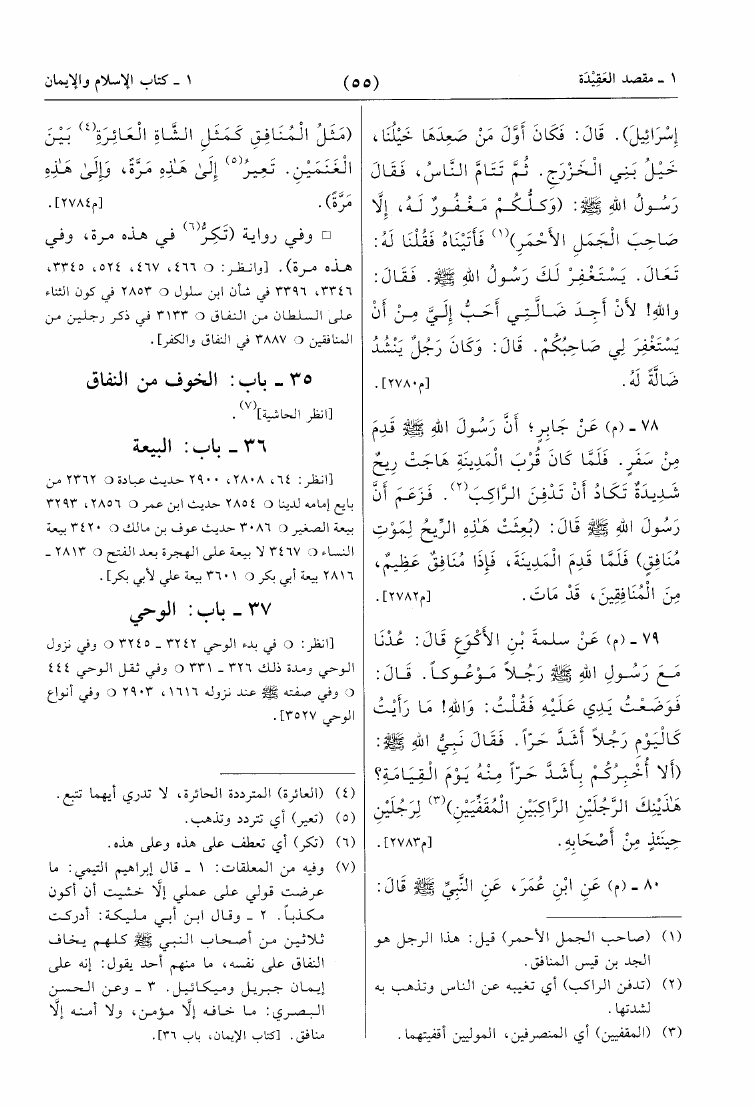 ١ ـ مقصد العَقِيْدَة
(٥٥)
١ ـ كتاب الإسلام والإيمان
إِسْرَائِيلَ). قَالَ: فَكَانَ أَوَّلَ مَنْ صَعِدَهَا خَيْلُنَا،
خَيْلُ بَنِي الْخَزْرَجِ. ثُمَّ تَتَامَّ النَّاسُ، فَقَالَ
رَسُولُ اللهِ ﷺ: (وَكُلُّكُمْ مَغْفُورٌ لَهُ، إِلَّا
صَاحِبَ الْجَمَلِ الأَحْمَرِ)(١) فَأَتَيْنَاهُ فَقُلْنَا لَهُ:
تَعَالَ. يَسْتَغْفِرْ لَكَ رَسُولُ اللهِ ﷺ. فَقَالَ:
واللهِ! لأَنْ أَجِدَ ضَالَّتِي أَحَبُّ إِلَيَّ مِنْ أَنْ
يَسْتَغْفِرَ لِي صَاحِبُكُمْ. قَالَ: وَكَانَ رَجُلٌ يَنْشُدُ
ضَالَّةً لَهُ. [م٢٧٨٠].
٧٨ ـ (م) عَنْ جَابِرٍ؛ أَنَّ رَسُولَ اللهِ ﷺ قَدِمَ
مِنْ سَفَرٍ. فَلَمَّا كَانَ قُرْبَ الْمَدِينَةِ هَاجَتْ رِيحٌ
شَدِيدَةٌ تَكَادُ أَنْ تَدْفِنَ الرَّاكِبَ(٢). فَزَعَمَ أَنَّ
رَسُولَ اللهِ ﷺ قَالَ: (بُعِثَتْ هَذِهِ الرِّيحُ لِمَوْتِ
مُنَافِقٍ) فَلَمَّا قَدِمَ الْمَدِينَةَ، فَإِذَا مُنَافِقٌ عَظِيمٌ،
مِنَ الْمُنَافِقِينَ، قَدْ مَاتَ. [م٢٧٨٢].
٧٩ ـ (م) عَنْ سلمةَ بْنِ الأَكْوَعِ قَالَ: عُدْنَا
مَعَ رَسُولِ اللهِ ﷺ رَجُلاً مَوْعُوكاً. قَالَ:
فَوَضَعْتُ يَدِي عَلَيْهِ فَقُلْتُ: وَاللهِ! مَا رَأَيْتُ
كَالْيَوْمِ رَجُلاً أَشَدَّ حَرّاً. فَقَالَ نَبِيُّ اللهِ ﷺ:
(أَلَا أُخْبِرُكُمْ بِأَشَدَّ حَرّاً مِنْهُ يَوْمَ القِيَامَةِ؟
هَذَيْنِكَ الرَّجُلَيْنِ الرَّاكِبَيْنِ الْمُقَفِّيَيْنِ)(٣) لِرَجُلَيْنِ
حِينَئِذٍ مِنْ أَصْحَابِهِ. [م٢٧٨٣].
٨٠ ـ (م) عَنِ ابْنِ عُمَرَ، عَنِ النَّبِيِّ ﷺ قَالَ:
(١) (صاحب الجمل الأحمر) قيل: هذا الرجل هو
الجد بن قيس المنافق.
(٢) (تدفن الراكب) أي تغيبه عن الناس وتذهب به
لشدتها.
(٣) (المقفيين) أي المنصرفين، الموليين أقفيتهما.
(مَثَلُ الْمُنَافِقِ كَمَثَلِ الشَّاةِ الْعَائِرَةِ(٤) بَيْنَ
الْغَنَمَيْنِ. تَعِيرُ(٥) إِلَىٰ هَٰذِهِ مَرَّةً، وَإِلَىٰ هَٰذِهِ
مَرَّةً). [م٢٧٨٤].
□ وفي رواية (تَكِرُّ(٦) في هذه مرة، وفي
هذه مرة). [وانظر: ○ ٤٦٦، ٤٦٧، ٥٢٤، ٣٣٤٥،
٣٣٤٦، ٣٣٩٦ في شأن ابن سلول ○ ٢٨٥٣ في كون الثناء
على السلطان من النفاق ○ ٣١٣٣ في ذكر رجلين من
المنافقين ○ ٣٨٨٧ في النفاق والكفر].
٣٥ ـ باب: الخوف من النفاق
[انظر الحاشية](٧).
٣٦ ـ باب: البيعة
[انظر: ٦٤، ٢٨٠٨، ٢٩٠٠ حديث عبادة ○ ٢٣٦٢ من
بايع إمامه لدينا ○ ٢٨٥٤ حديث ابن عمر ○ ٢٨٥٦، ٣٢٩٣
بيعة الصغير ○ ٣٠٨٦ حديث عوف بن مالك ○ ٣٤٢٠ بيعة
النساء ○ ٣٤٦٧ لا بيعة على الهجرة بعد الفتح ○ ٢٨١٣ ـ
٢٨١٦ بيعة أبي بكر ○ ٣٦٠١ بيعة علي لأبي بكر].
٣٧ ـ باب: الوحي
[انظر: ○ في بدء الوحي ٣٢٤٢ ـ ٣٢٤٥ ○ وفي نزول
الوحي ومدة ذلك ٣٢٦ ـ ٣٣١ ○ وفي ثقل الوحي ٤٤٤
○ وفي صفته ﷺ عند نزوله ١٦١٦، ٢٩٠٣ ○ وفي أنواع
الوحي ٣٥٢٧].
(٤) (العائرة) المترددة الحائرة، لا تدري أيهما تتبع.
(٥) (تعير) أي تتردد وتذهب.
(٦) (تكر) أي تعطف على هذه وعلى هذه.
(٧) وفيه من المعلقات: ١ ـ قال إبراهيم التيمي: ما
عرضت قولي على عملي إلَّا خشيت أن أكون
مكذباً. ٢ ـ وقال ابن أبي مليكة: أدركت
ثلاثين من أصحاب النبي ﷺ كلهم يخاف
النفاق على نفسه، ما منهم أحد يقول: إنه على
إيمان جبريل وميكائيل. ٣ ـ وعن الحسن
البصري: ما خافه إلَّا مؤمن، ولا أمنه إلَّا
منافق. [كتاب الإيمان، باب ٣٦].